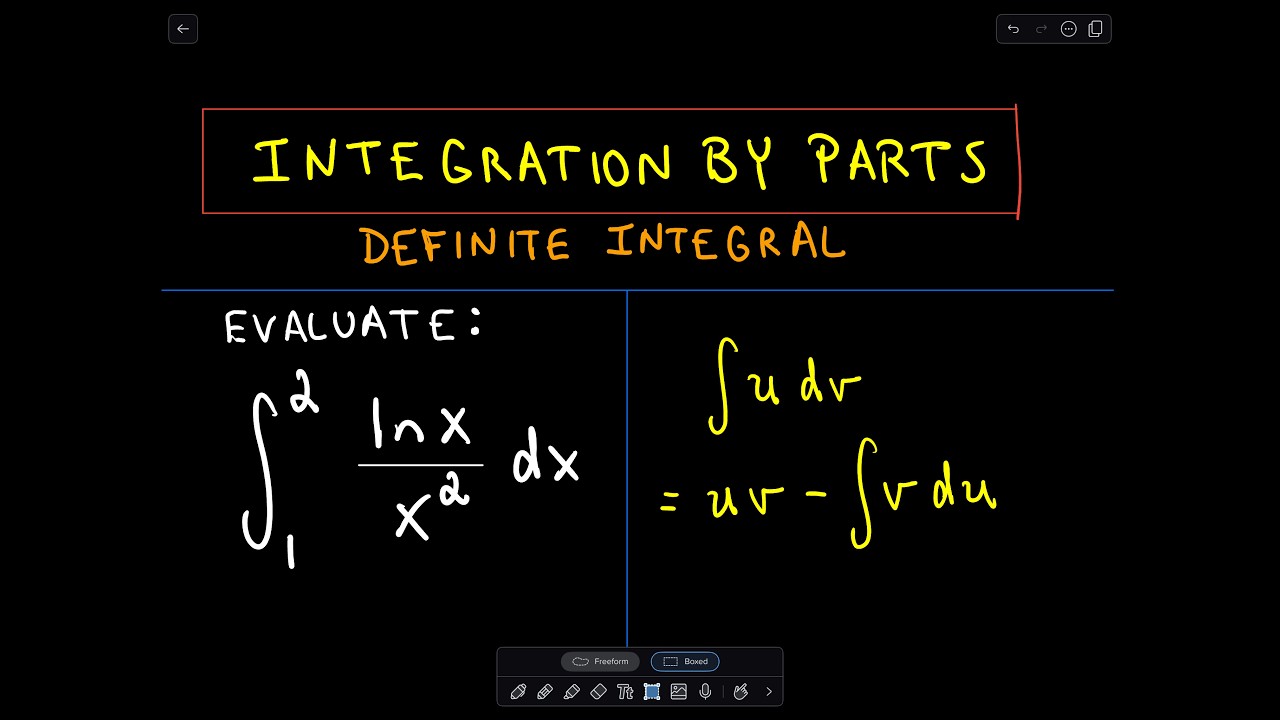 INTEGRATION BY PARTS
DEFINITE INTEGRAL
EVALUATE:
∫₁² ln x / x² dx
∫ u dv
= uv - ∫ v du
Freeform Boxed
Tt